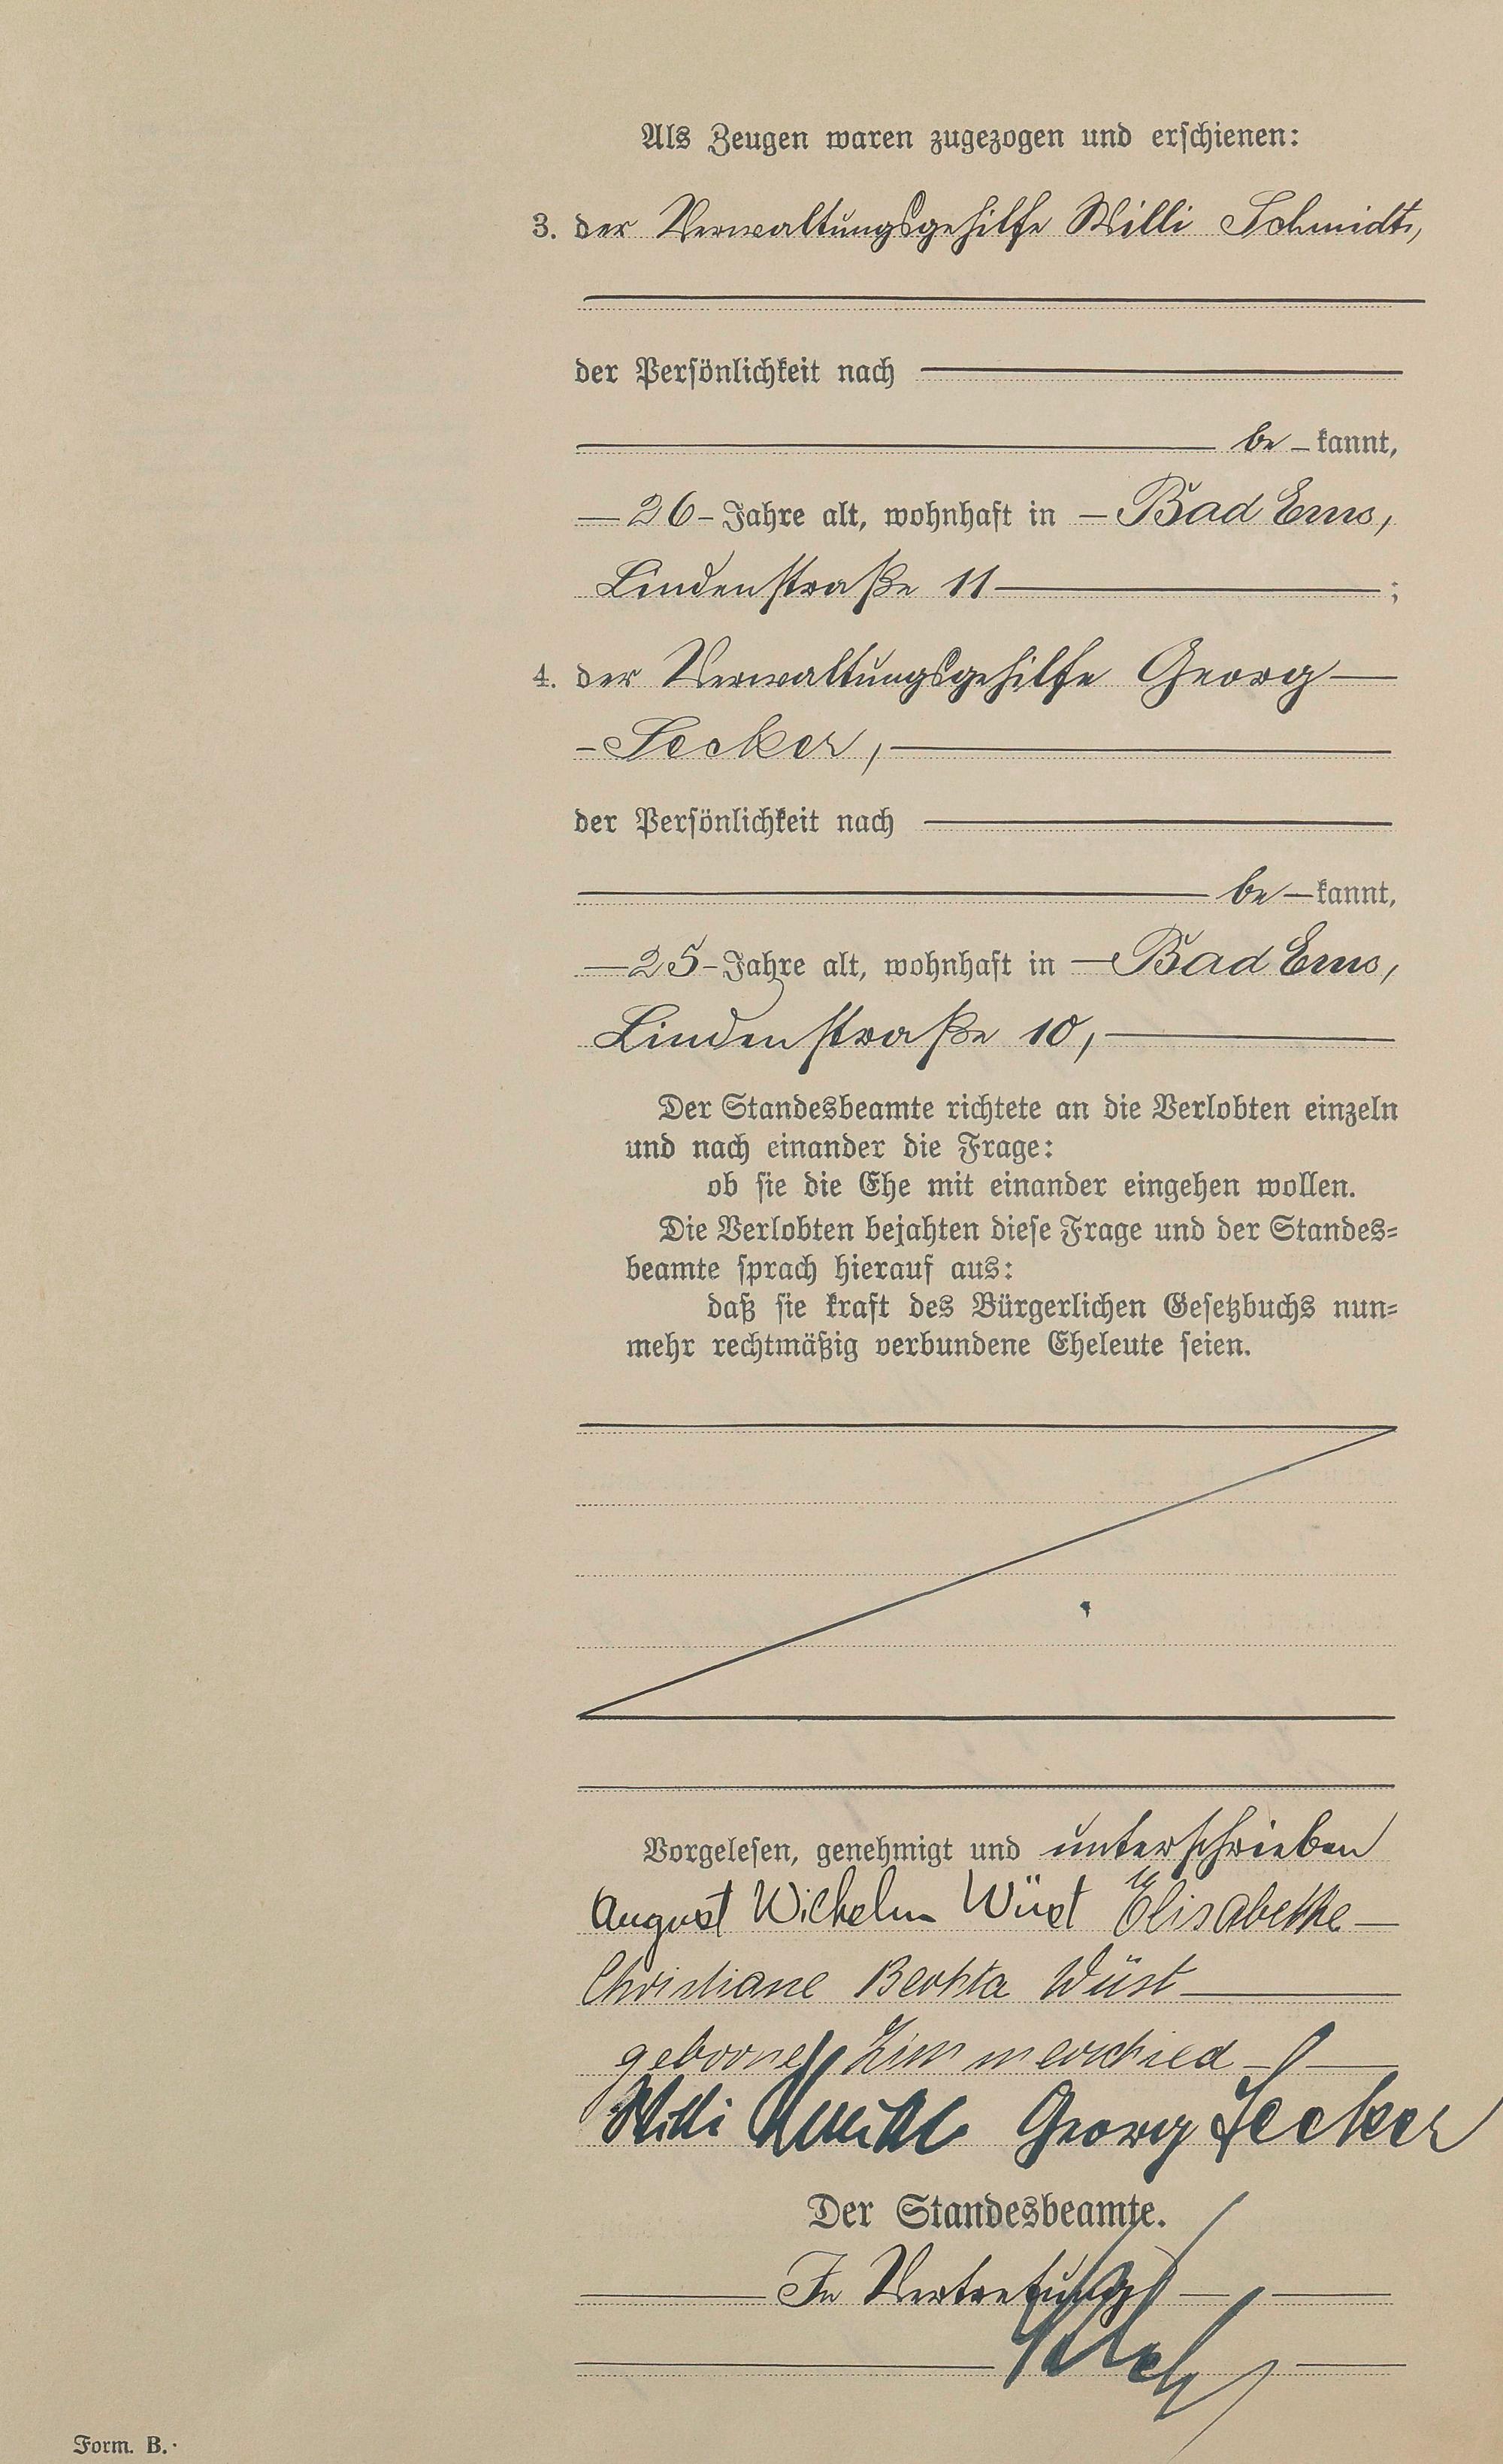 Als Zeugen waren zugezogen und erschienen:
3. der Verwaltungsgehilfe Willi Schmidt,
der Persönlichkeit nach
be-kannt,
26 Jahre alt, wohnhaft in Bad Ems,
Lindenstraße 11;
4. der Verwaltungsgehilfe Georg
Secker,
der Persönlichkeit nach
be-kannt,
25 Jahre alt, wohnhaft in Bad Ems,
Lindenstraße 10,
Der Standesbeamte richtete an die Verlobten einzeln
und nach einander die Frage:
ob sie die Ehe mit einander eingehen wollen.
Die Verlobten bejahten diese Frage und der Standes=
beamte sprach hierauf aus:
daß sie kraft des Bürgerlichen Gesetzbuchs nun=
mehr rechtmäßig verbundene Eheleute seien.
Vorgelesen, genehmigt und unterschrieben
August Wilhelm Wüst Elisabethe
Christiane Bertha Wüst
geborne Zimmerschied
Willi Schmidt Georg Secker
Der Standesbeamte.
In Vertretung
Form. B.